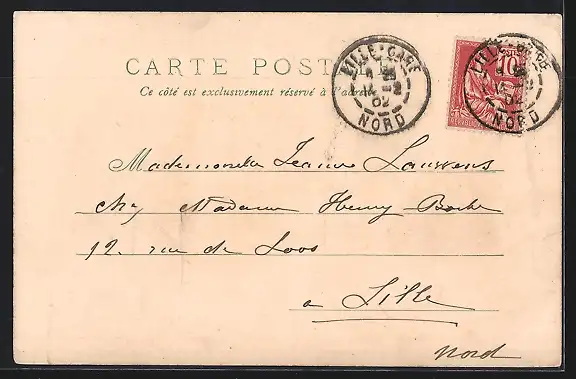 CARTE POSTALE
Ce côté est exclusivement réservé à l'adresse
LILLE-GARE
02
NORD
10
LILLE-GARE
02
NORD
Mademoiselle Jeanne Lauwens
chez Madame Henry
12. rue de Loos
a Lille
Nord